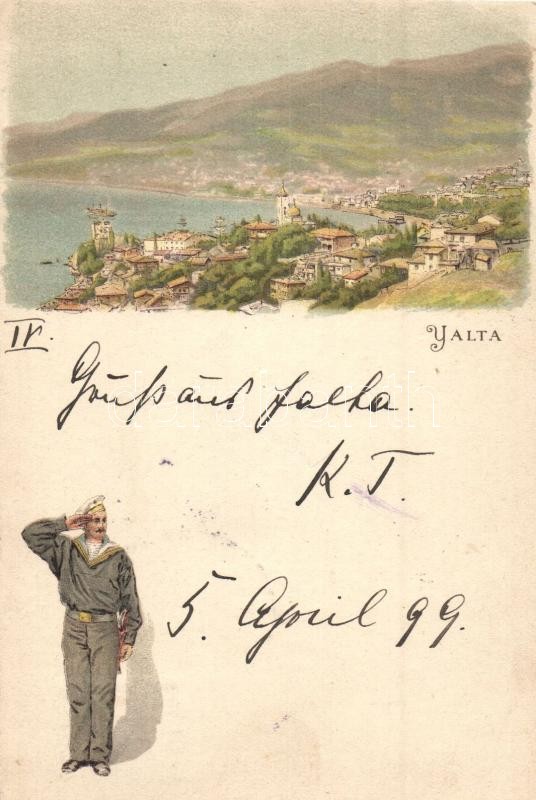 YALTA
IV.
Gruß aus Jalta.
K. T.
5. April 99.